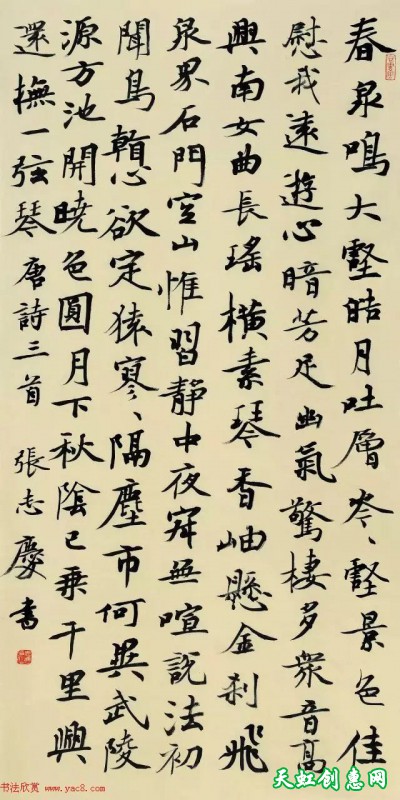 春泉鳴大壑皓月吐層岑、壑景色佳
慰我遠遊心暗芳足幽氣驚棲多眾音高
興南女曲長瑤橫素琴香岫懸金刹飛
泉界石門空山惟習靜中夜寂無喧說法初
聞鳥心欲定猿寥、隔塵市何異武陵
源方池開曉色圓月下秋陰已乘千里興
還撫一弦琴 唐詩三首 張志慶書
书法欣赏 www.yac8.com
天虹创惠网